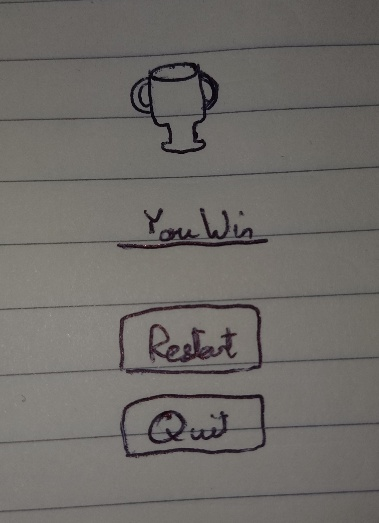 You Win
Restart
Quit